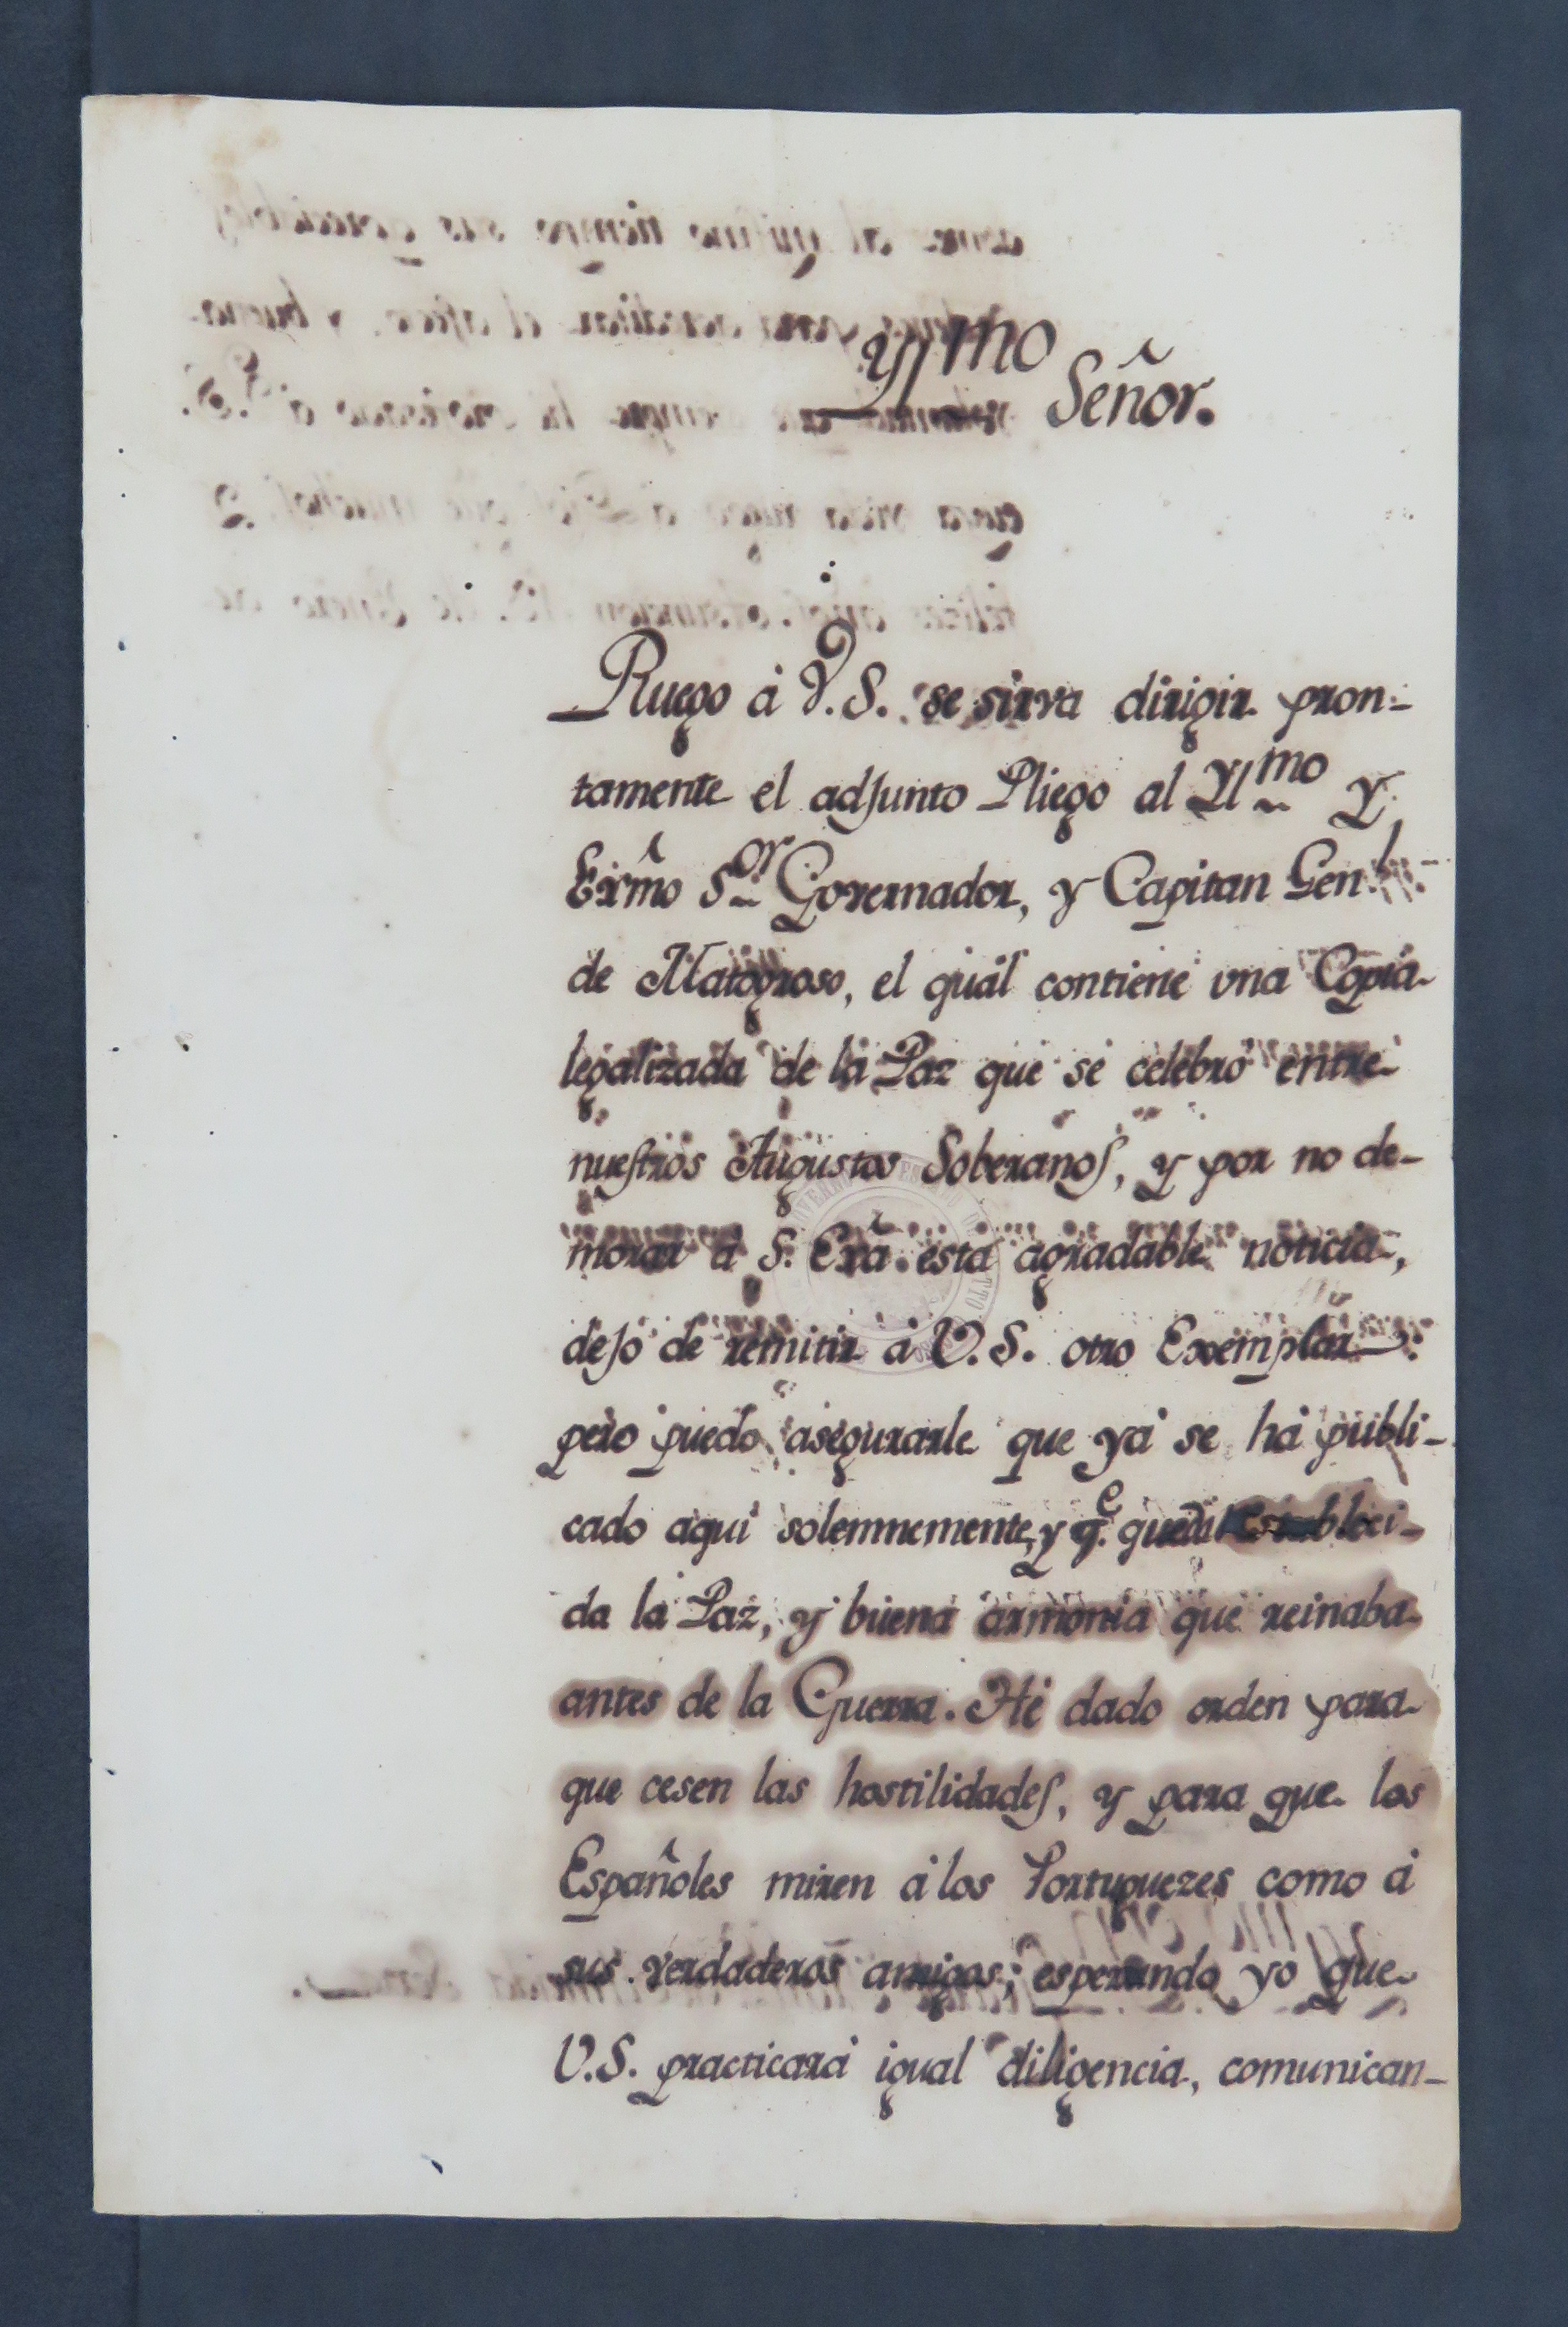 Yl.mo Señor.
Ruego á V.S. se sirva dirigir pron-
tamente el adjunto Pliego al Yl.mo y
Exm̃o S.or Governador, y Capitan Gen.l
de Matogroso, el quál contiene vna Copia
legalizada de la Paz que se celebró entre
nuestros Augustos Soberanos, y por no de-
morar á S. Exã. esta agradable noticia,
dejo de remitir á V.S. otro Exemplar:
pero puedo asegurarle que yá se há publi-
cado aqui solemnemente, y q.e queda restableci-
da la Paz, y buena armonia que reinaba
antes de la Guerra. Hé dado orden para
que cesen las hostilidades, y para que los
Españoles miren á los Portuguezes como á
sus verdaderos amigos; esperando yo que
V.S. practicará igual diligencia, comunican-